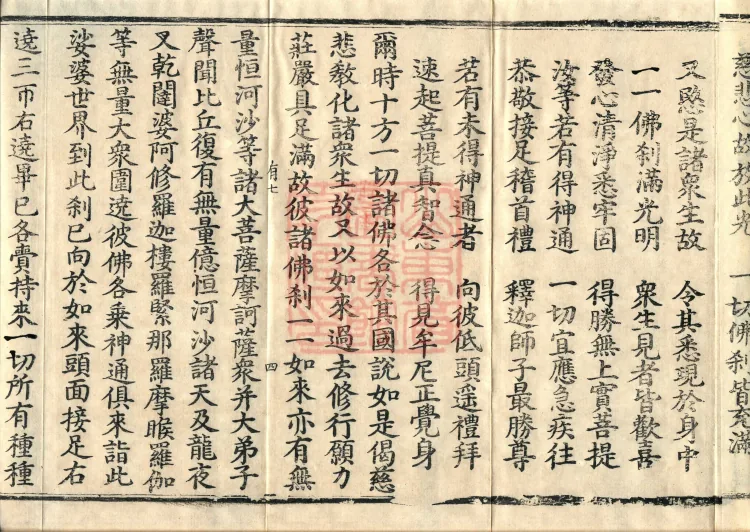 慈悲心故放此光　一切佛刹皆充滿
又愍是諸衆生故　令其悉現於身中
一一佛刹滿光明　衆生見者皆歡喜
發心清淨悉牢固　得勝無上寶菩提
汝等若有得神通　一切宜應急疾往
恭敬接足稽首禮　釋迦師子最勝尊
若有未得神通者　向彼低頭遥禮拜
速起菩提真智念　得見牟尼正覺身
爾時十方一切諸佛各於其國說如是偈慈
悲敎化諸衆生故又以如來過去修行願力
莊嚴具足滿故彼諸佛刹一一如來亦有無
有七　四
量恒河沙等諸大菩薩摩訶薩衆并大弟子
聲聞比丘復有無量億恒河沙諸天及龍夜
叉乾闥婆阿修羅迦樓羅緊那羅摩睺羅伽
等無量大衆圍遶彼佛各乘神通俱來詣此
娑婆世界到此刹已向於如來頭面接足右
遶三帀右遶畢已各賷持來一切所有種種